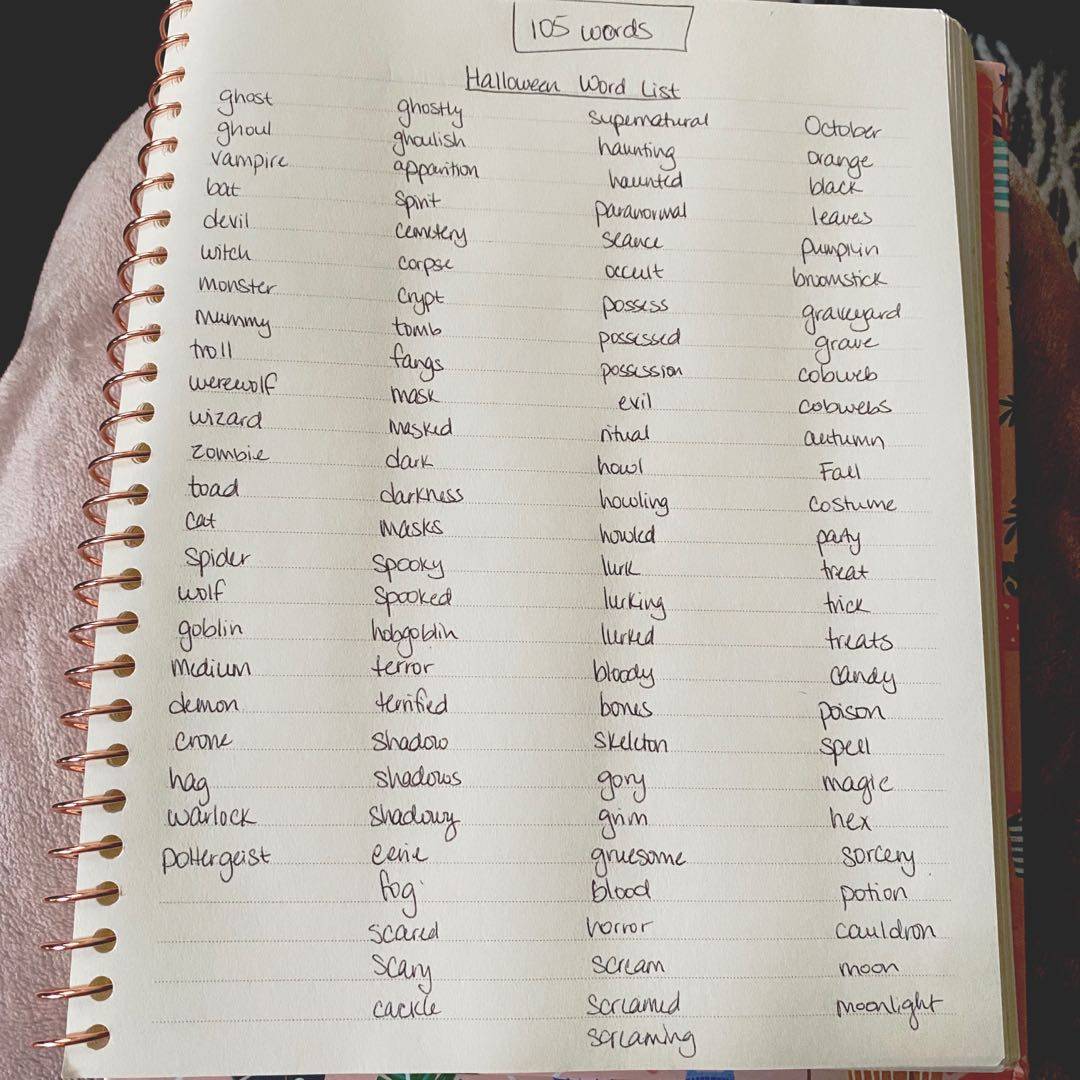 105 words
Halloween Word List
ghost
ghoul
vampire
bat
devil
witch
monster
mummy
troll
werewolf
wizard
zombie
toad
cat
spider
wolf
goblin
medium
demon
crone
hag
warlock
poltergeist
ghostly
ghoulish
apparition
spirit
cemetery
corpse
crypt
tomb
fangs
mask
masked
dark
darkness
masks
spooky
spooked
hobgoblin
terror
terrified
shadow
shadows
shadowy
eerie
fog
scared
scary
cackle
supernatural
haunting
haunted
paranormal
seance
occult
possess
possessed
possession
evil
ritual
howl
howling
howled
lurk
lurking
lurked
bloody
bones
skeleton
gory
grim
gruesome
blood
horror
scream
screamed
screaming
October
orange
black
leaves
pumpkin
broomstick
graveyard
grave
cobweb
cobwebs
autumn
Fall
costume
party
treat
trick
treats
candy
poison
spell
magic
hex
sorcery
potion
cauldron
moon
moonlight